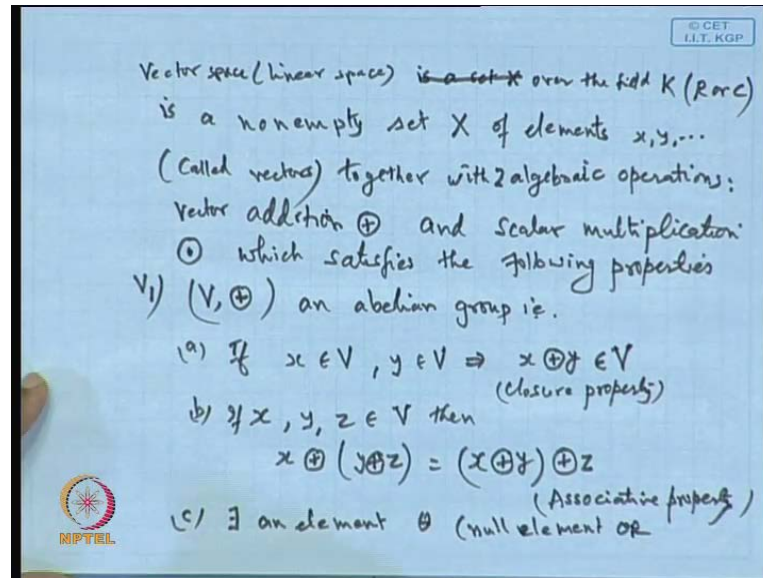 © CET
I.I.T. KGP
Vector space (linear space) is a set X over the field K (R or C)
is a nonempty set X of elements x, y, ...
(Called vectors) together with 2 algebraic operations:
vector addition ⊕ and scalar multiplication
⊙ which satisfies the following properties
V₁) (V, ⊕) an abelian group i.e.
(a) If x ∈ V, y ∈ V ⇒ x ⊕ y ∈ V
(Closure property)
b) If x, y, z ∈ V then
x ⊕ (y ⊕ z) = (x ⊕ y) ⊕ z
(Associative property)
(c) ∃ an element θ (null element OR
NPTEL